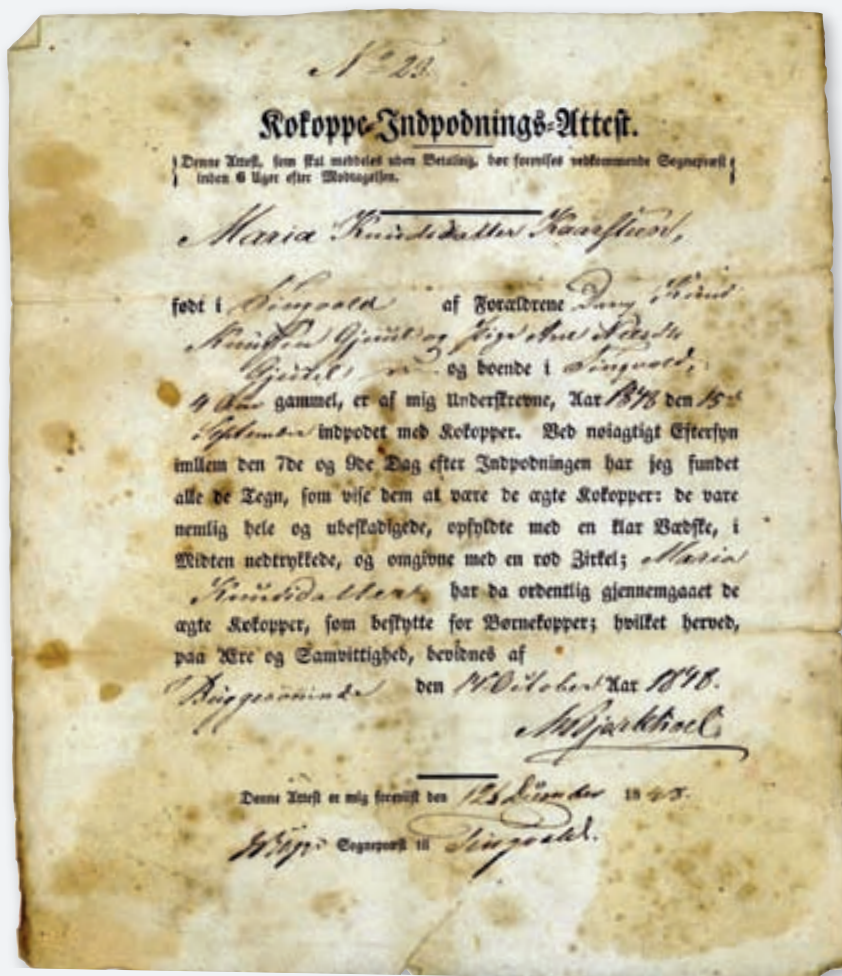 No 23.
Kokoppe-Indpodnings-Attest.
Denne Attest, som skal meddeles uden Betaling, bør forevises vedkommende Sognepræst
inden 6 Uger efter Modtagelsen.
Maria Knudsdatter
født i Tingvold af Forældrene
Knudsen og Pige Ane
og boende i Tingvold,
4 Aar gammel, er af mig Underskrevne, Aar 1848 den 15de
September indpodet med Kokopper. Ved nøiagtigt Eftersyn
imllem den 7de og 9de Dag efter Indpodningen har jeg fundet
alle de Tegn, som vise dem at være de ægte Kokopper: de vare
nemlig hele og ubeskadigede, opfyldte med en klar Vædske, i
Midten nedtrykkede, og omgivne med en rød Zirkel; Maria
Knudsdatter har da ordentlig gjennemgaaet de
ægte Kokopper, som beskytte for Børnekopper; hvilket herved,
paa Ære og Samvittighed, bevidnes af
den October Aar 1848.
Denne Attest er mig foreviist den December 1848.
Sognepræst til Tingvold.